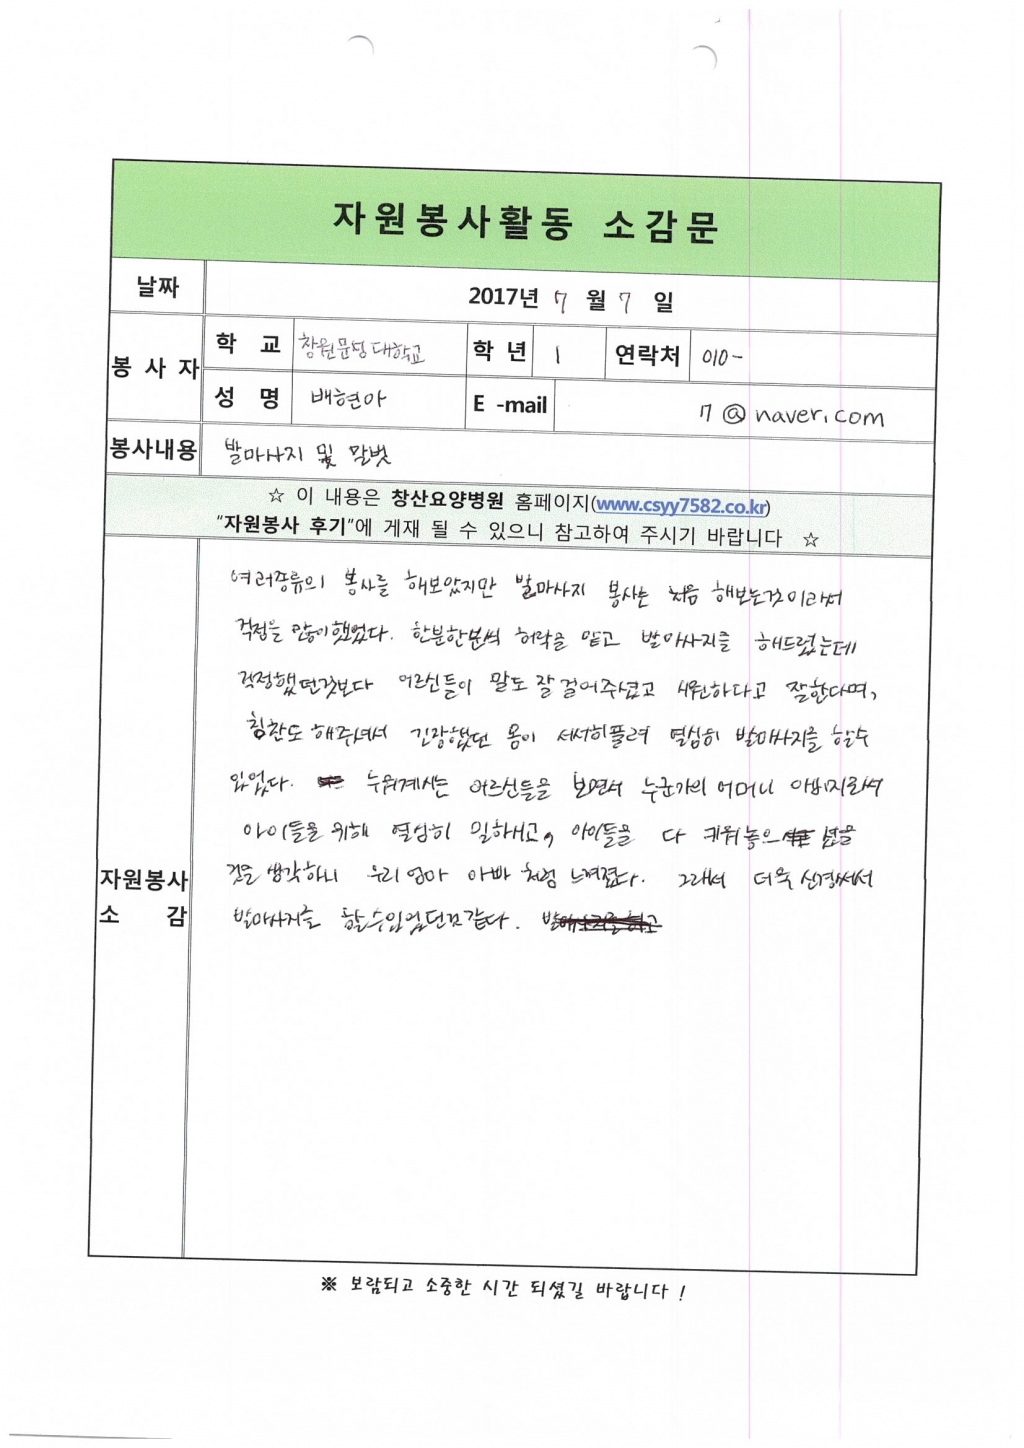 자원봉사활동 소감문
날짜 2017년 7 월 7 일
봉 사 자 학 교 창원문성대학교 학 년 1 연락처 010-
성 명 배현아 E -mail 7 @ naver.com
봉사내용 발마사지 및 말벗
☆ 이 내용은 창산요양병원 홈페이지(www.csyy7582.co.kr)
"자원봉사 후기"에 게재 될 수 있으니 참고하여 주시기 바랍니다 ☆
자원봉사
소 감
여러종류의 봉사를 해보았지만 발마사지 봉사는 처음 해보는것이라서
걱정을 많이했었다. 한분한분씩 허락을 맡고 발마사지를 해드렸는데
걱정했던것보다 어르신들이 말도 잘 걸어주셨고 시원하다고 잘한다며,
칭찬도 해주셔서 긴장했던 몸이 서서히풀려 열심히 발마사지를 할수
있었다. 누워계시는 어르신들을 보면서 누군가의 어머니 아버지로써
아이들을 위해 열심히 일하시고, 아이들을 다 키워놓으셨을
것을 생각하니 우리 엄마 아빠 처럼 느껴졌다. 그래서 더욱 신경써서
발마사지를 할수있었던것같다.
※ 보람되고 소중한 시간 되셨길 바랍니다 !